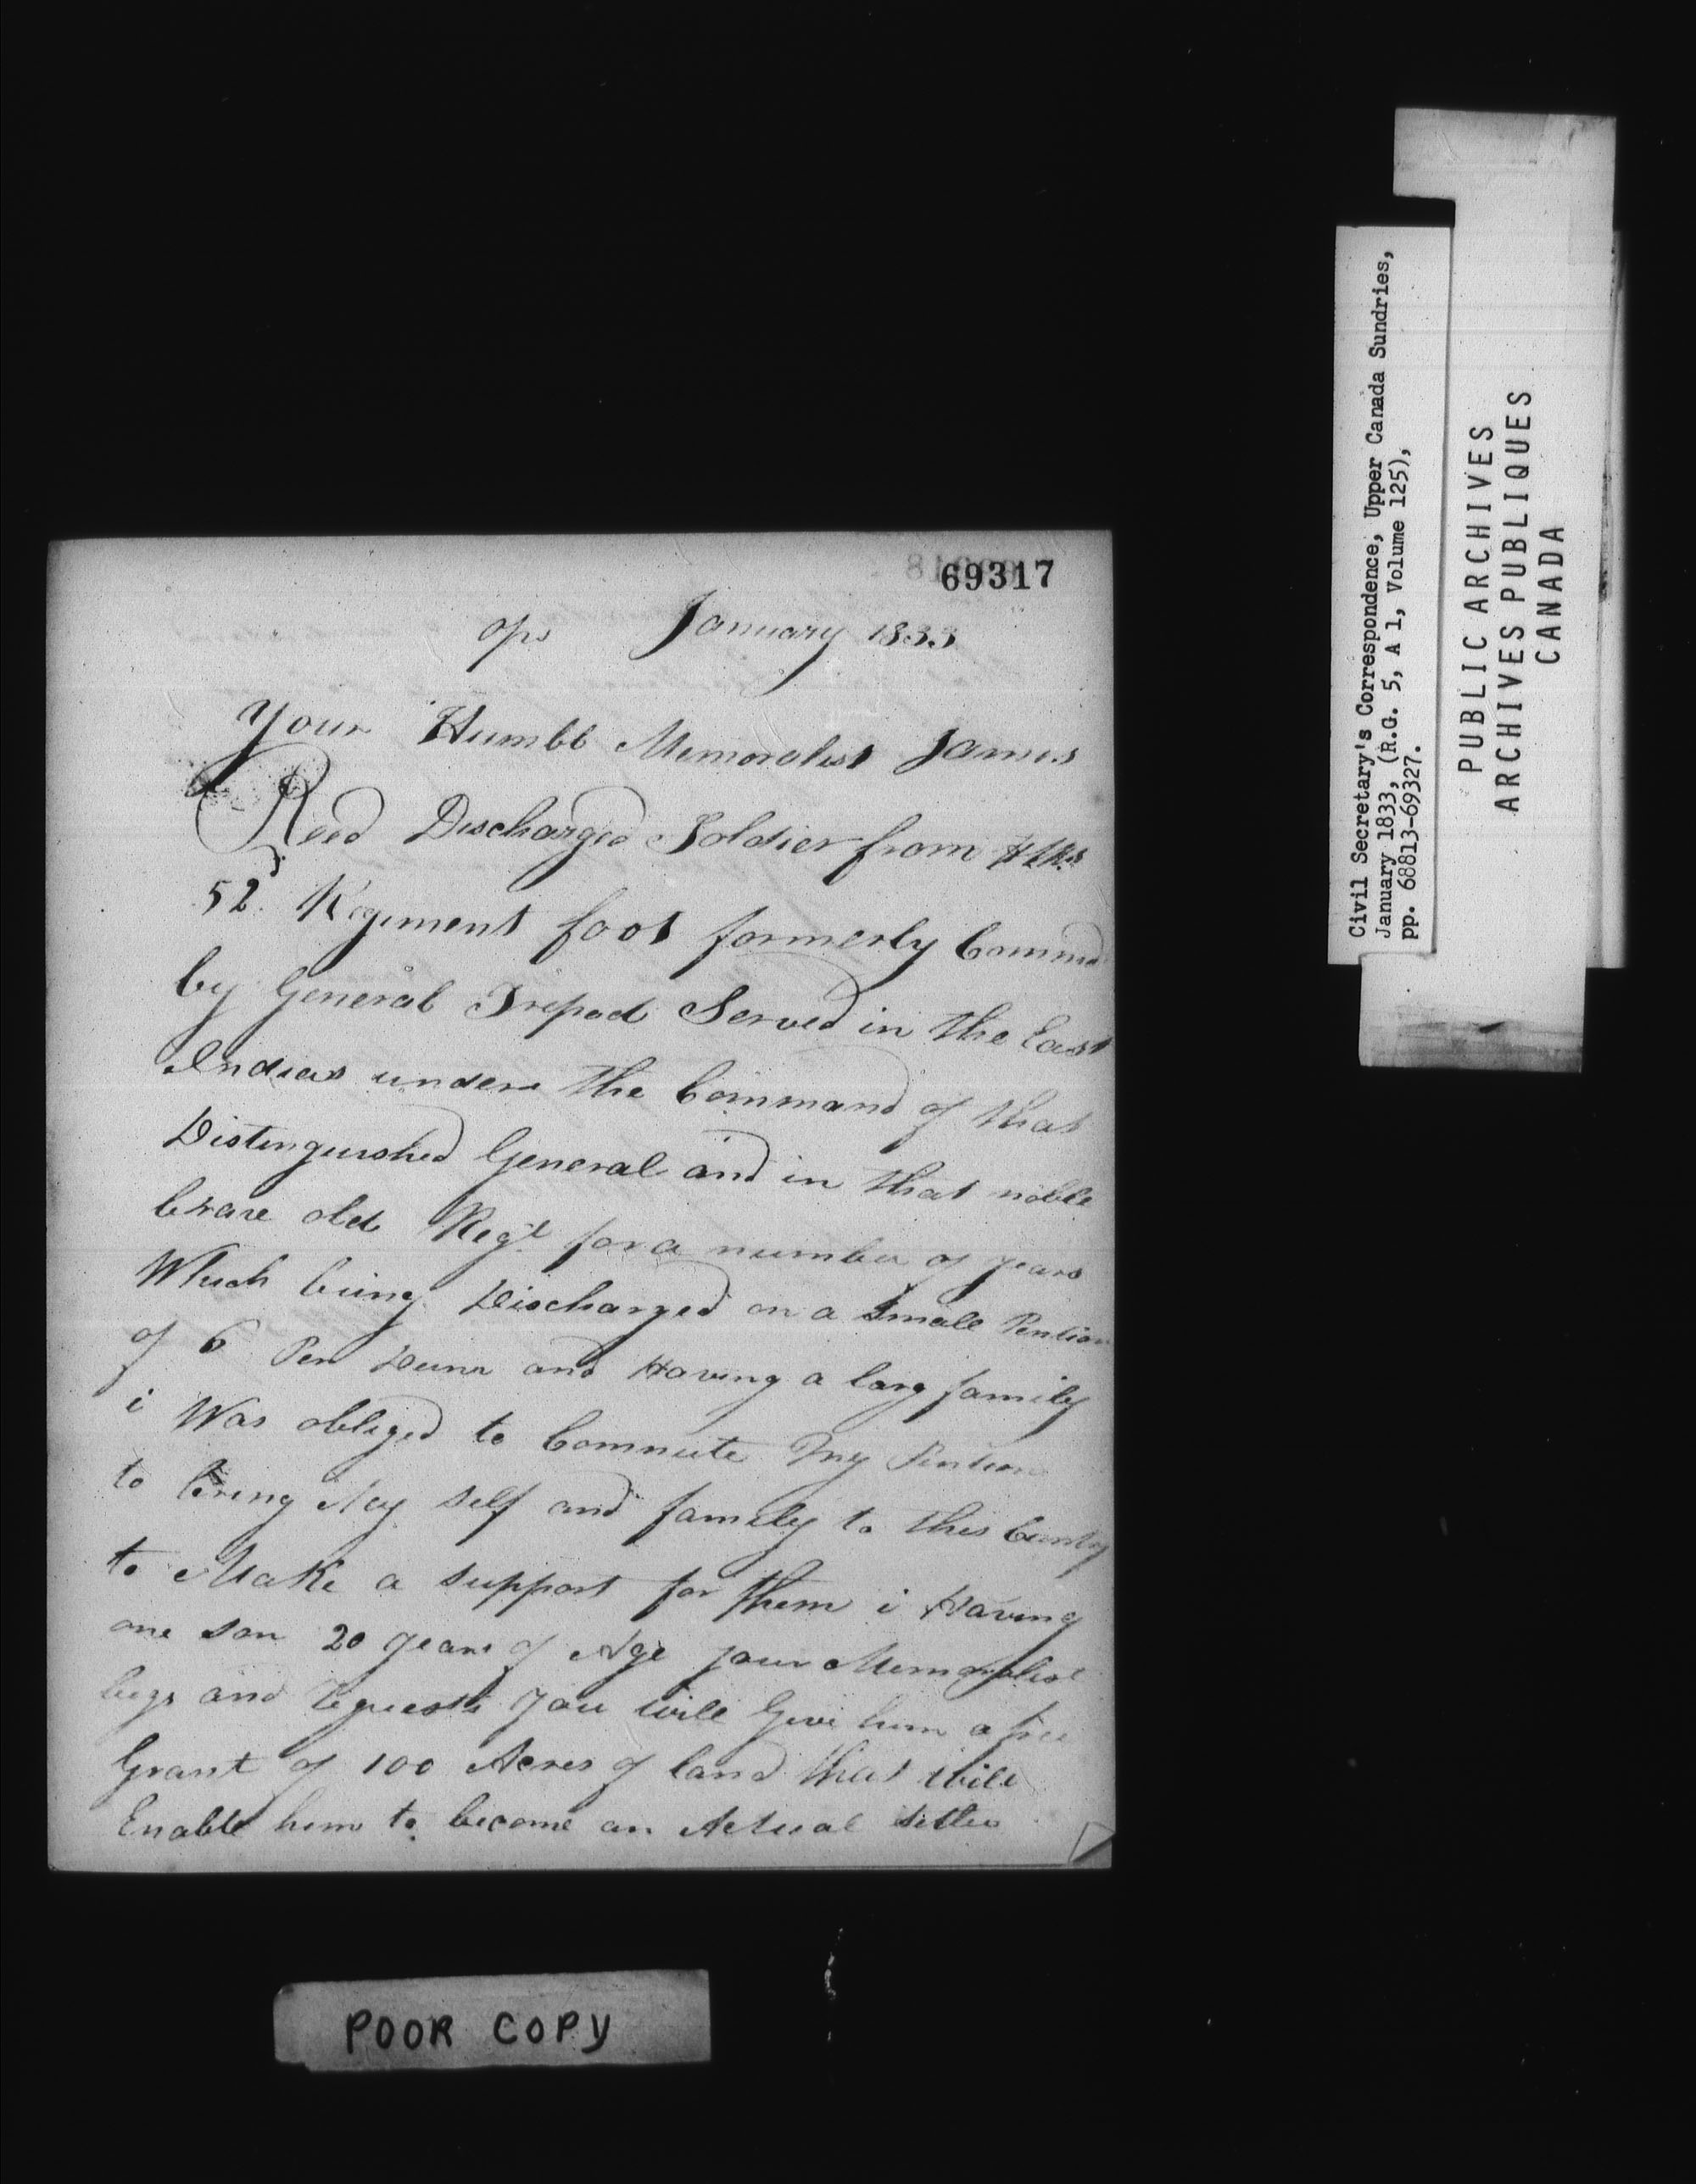 69317
ops January 1833
Your Humbl Memorolist James
Reed Discharged Soldier from HMs
52d Regiment foot formerly Command
by General Trepod Served in the East
Indias under the Command of that
Distinguished General and in that noble
brave old Regt for a number of years
Which being Discharged on a Small Pention
of 6 Per and Having a larg family
i Was obliged to Commute My Pention
to bring My self and family to this Cuntry
to Make a support for them i Having
one son 20 years of Age your Memorolist
begs and requests you will Give him a free
Grant of 100 Acres of land that will
Enable him to become an Actual Settler
POOR COPY
Civil Secretary's Correspondence, Upper Canada Sundries,
January 1833, (R.G. 5, A 1, Volume 125),
pp. 68813-69327.
PUBLIC ARCHIVES
ARCHIVES PUBLIQUES
CANADA